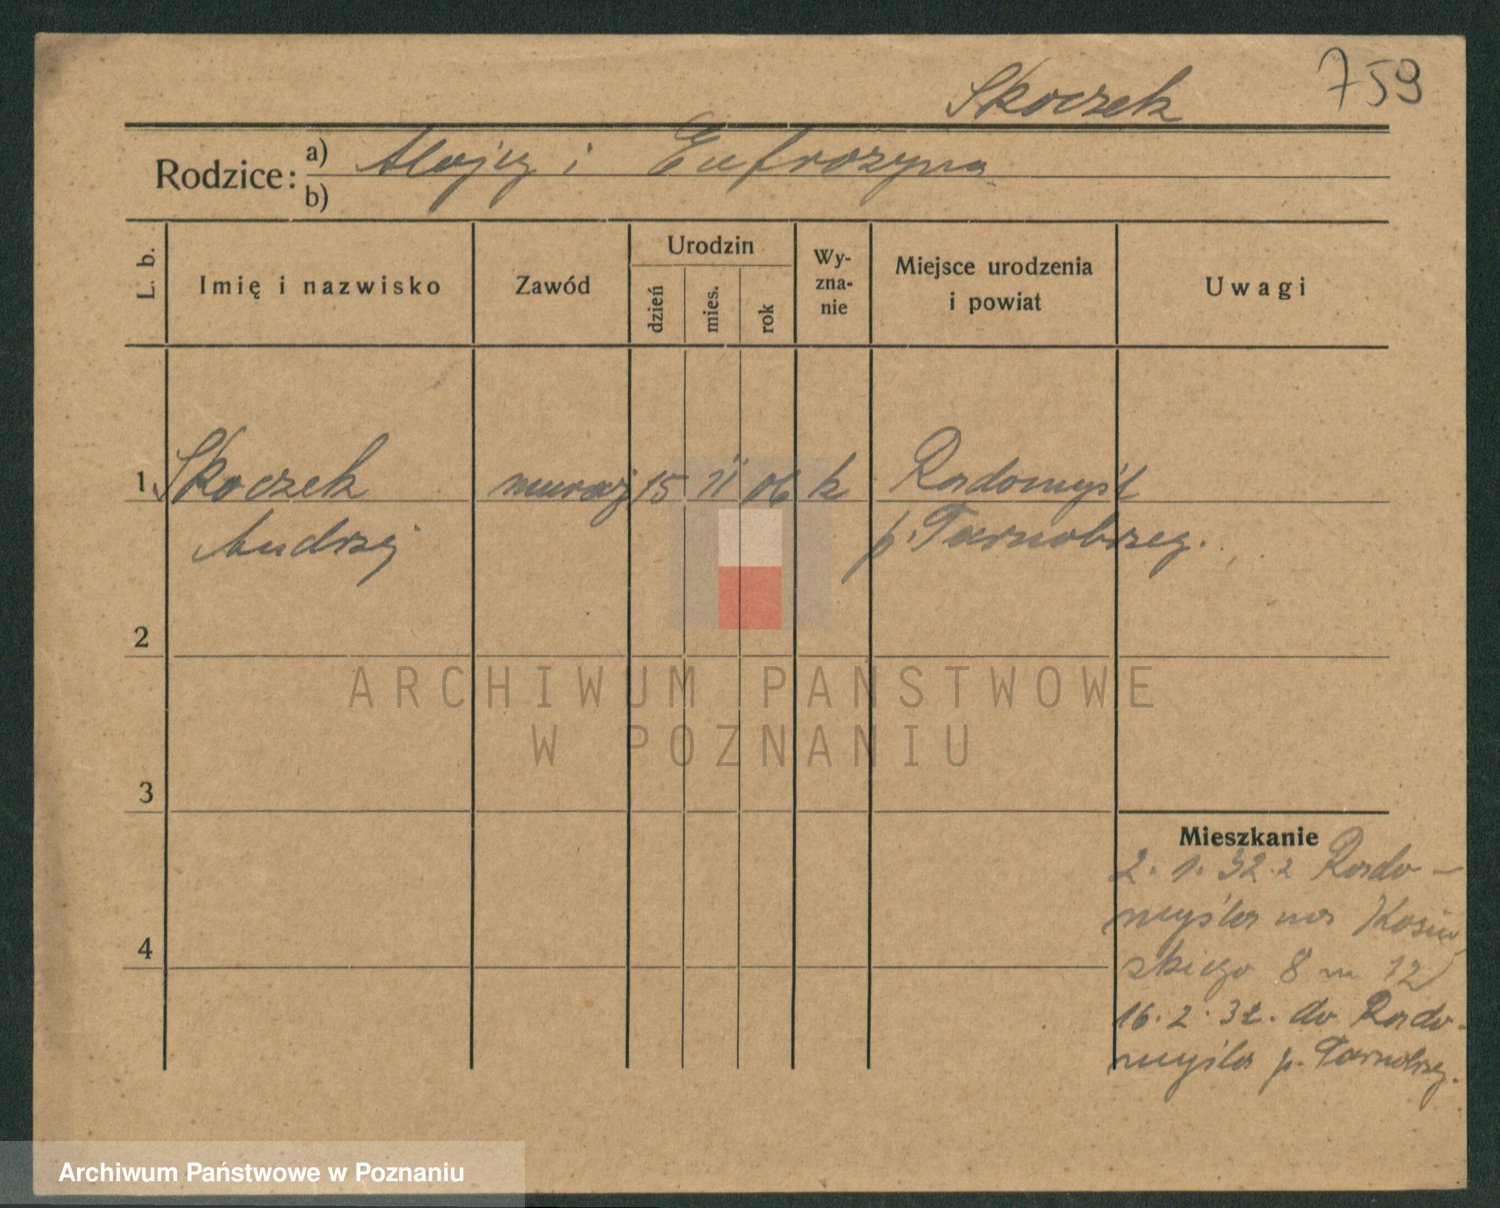 759
Skoczek
Rodzice: a) Alojzy i Eufrozyna
b)
L. b. Imię i nazwisko Zawód Urodzin dzień mies. rok Wy-zna-nie Miejsce urodzenia i powiat Uwagi
1. Skoczek 15 11 06 k Radomyśl
Andrzej p. Tarnobrzeg.
2
ARCHIWUM PAŃSTWOWE
W POZNANIU
3
Mieszkanie
2. 1. 32 z Rado-
myśla na Kosiń
4
skiego 8 m 12
16. 2. 32. do Rado-
myśla p. Tarnobrzeg.
Archiwum Państwowe w Poznaniu